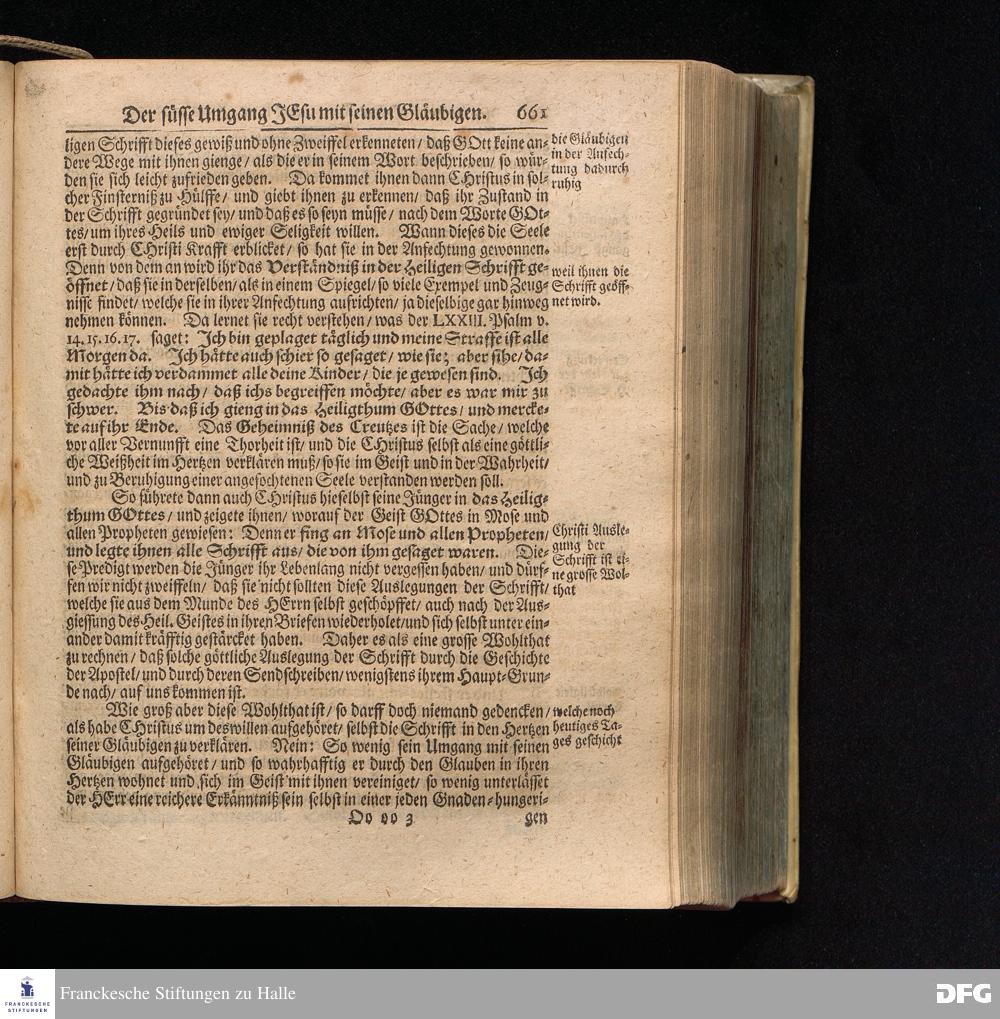 Der süsse Umgang JEsu mit seinen Gläubigen. 661
ligen Schrifft dieses gewiß und ohne Zweiffel erkenneten/ daß GOtt keine an-
dere Wege mit ihnen gienge/ als die er in seinem Wort beschrieben/ so wür-
den sie sich leicht zufrieden geben. Da kommet ihnen dann CHristus in sol-
cher Finsterniß zu Hülffe/ und giebt ihnen zu erkennen/ daß ihr Zustand in
der Schrifft gegründet sey/ und daß es so seyn müsse/ nach dem Worte GOt-
tes/ um ihres Heils und ewiger Seligkeit willen. Wann dieses die Seele
erst durch CHristi Krafft erblicket/ so hat sie in der Anfechtung gewonnen.
Denn von dem an wird ihr das Verständniß in der Heiligen Schrifft ge-
öffnet/ daß sie in derselben/ als in einem Spiegel/ so viele Exempel und Zeug-
nisse findet/ welche sie in ihrer Anfechtung aufrichten/ ja dieselbige gar hinweg
nehmen können. Da lernet sie recht verstehen/ was der LXXIII. Psalm v.
14. 15. 16. 17. saget: Ich bin geplaget täglich und meine Straffe ist alle
Morgen da. Ich hätte auch schier so gesaget/ wie sie; aber sihe/ da-
mit hätte ich verdammet alle deine Kinder/ die je gewesen sind. Ich
gedachte ihm nach/ daß ichs begreiffen möchte/ aber es war mir zu
schwer. Bis daß ich gieng in das Heiligthum GOttes/ und mercke-
te auf ihr Ende. Das Geheimniß des Creutzes ist die Sache/ welche
vor aller Vernunfft eine Thorheit ist/ und die CHristus selbst als eine göttli-
che Weißheit im Hertzen verklären muß/ so sie im Geist und in der Wahrheit/
und zu Beruhigung einer angefochtenen Seele verstanden werden soll.
So führete dann auch CHristus hieselbst seine Jünger in das Heilig-
thum GOttes/ und zeigete ihnen/ worauf der Geist GOttes in Mose und
allen Propheten gewiesen: Denn er fing an Mose und allen Propheten/
und legte ihnen alle Schrifft aus/ die von ihm gesaget waren. Die-
se Predigt werden die Jünger ihr Lebenlang nicht vergessen haben/ und dürf-
fen wir nicht zweiffeln/ daß sie nicht sollten diese Auslegungen der Schrifft/
welche sie aus dem Munde des HErrn selbst geschöpffet/ auch nach der Aus-
giessung des Heil. Geistes in ihren Briefen wiederholet/ und sich selbst unter ein-
ander damit kräfftig gestärcket haben. Daher es als eine grosse Wohlthat
zu rechnen/ daß solche göttliche Auslegung der Schrifft durch die Geschichte
der Apostel/ und durch deren Sendschreiben/ wenigstens ihrem Haupt-Grun-
de nach/ auf uns kommen ist.
Wie groß aber diese Wohlthat ist/ so darff doch niemand gedencken/
als habe CHristus um deswillen aufgehöret/ selbst die Schrifft in den Hertzen
seiner Gläubigen zu verklären. Nein: So wenig sein Umgang mit seinen
Gläubigen aufgehöret/ und so wahrhafftig er durch den Glauben in ihren
Hertzen wohnet und sich im Geist mit ihnen vereiniget/ so wenig unterlässet
der HErr eine reichere Erkänntniß sein selbst in einer jeden Gnaden-hungeri-
Oo oo 3 gen
die Gläubigen
in der Anfech-
tung dadurch
ruhig
weil ihnen die
Schrifft geöff-
net wird.
Christi Ausle-
gung der
Schrifft ist ei-
ne grosse Wol-
that
welche noch
heutiges Ta-
ges geschicht
FRANCKESCHE
STIFTUNGEN
Franckesche Stiftungen zu Halle
DFG